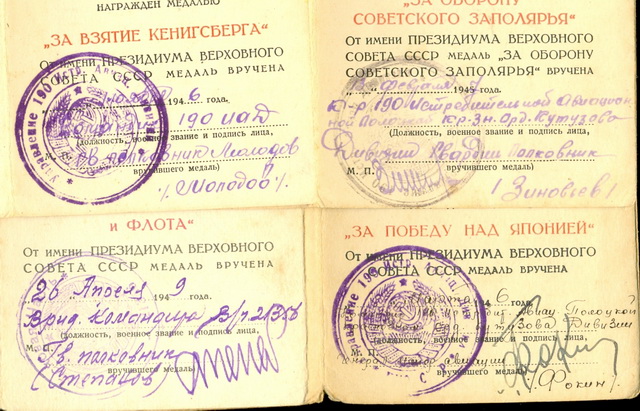 НАГРАЖДЕН МЕДАЛЬЮ
„ЗА ВЗЯТИЕ КЕНИГСБЕРГА“
От имени ПРЕЗИДИУМА ВЕРХОВНОГО
СОВЕТА СССР МЕДАЛЬ ВРУЧЕНА
194 6 года.
190 ИАД
(должность, военное звание и подпись лица,
М. П. Гв. полковник Молодов
вручившего медаль)
/Молодов/.
„ЗА ОБОРОНУ
СОВЕТСКОГО ЗАПОЛЯРЬЯ“
От имени ПРЕЗИДИУМА ВЕРХОВНОГО
СОВЕТА СССР МЕДАЛЬ „ЗА ОБОРОНУ
СОВЕТСКОГО ЗАПОЛЯРЬЯ“ ВРУЧЕНА
февраля 1945 года.
К-р 190 Истребительной Авиацион
ной Полоцкой Кр. Зн. Орд. Кутузова
(Должность, военное звание и подпись лица,
Дивизии Гвардии Полковник
М. П. вручившего медаль)
/Зиновьев/
И ФЛОТА“
От имени ПРЕЗИДИУМА ВЕРХОВНОГО
СОВЕТА СССР МЕДАЛЬ ВРУЧЕНА
26 Апреля 194 9 года.
Врид Командира В/ч
(должность, военное звание и подпись лица,
М. П. Гв. полковник
вручившего медаль)
(Степанов)
„ЗА ПОБЕДУ НАД ЯПОНИЕЙ“
От имени ПРЕЗИДИУМА ВЕРХОВНОГО
СОВЕТА СССР МЕДАЛЬ ВРУЧЕНА
6 года.
Авиац Полоцкой
Кутузова Дивизии
(должность, военное звание и подпись лица,
М. П.
вручившего медаль)
/Фокин/
Управление 190 Истр.